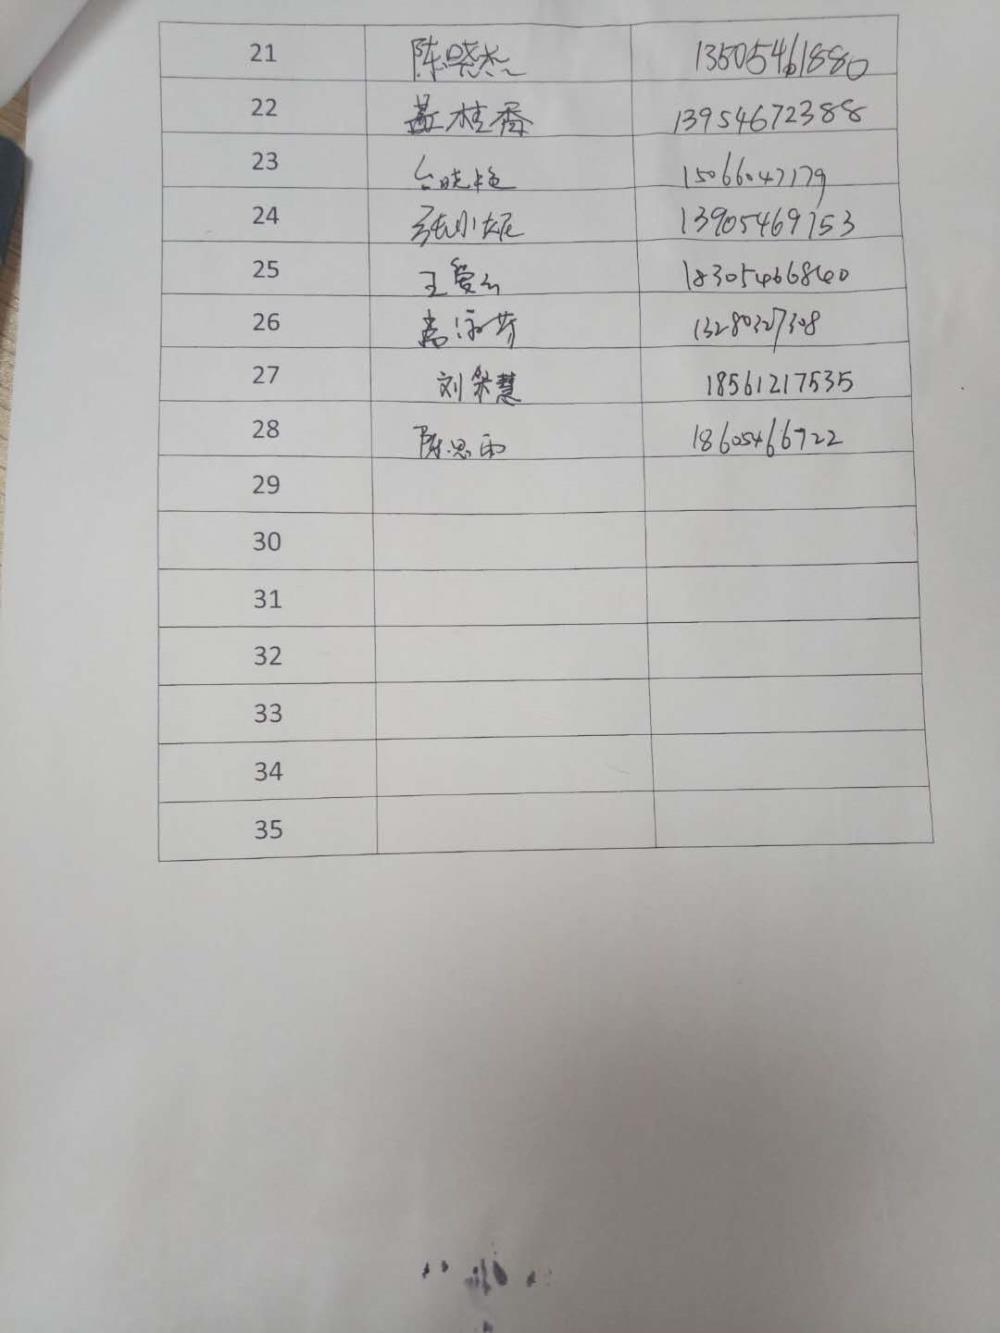 21 陈晓杰 13505461880
22 盖桂香 13954672388
23 台晓艳 15066047179
24 张小妮 13905469753
25 王爱云 18305466840
26 高泳芬 13280327308
27 刘 慧 18561217535
28 陈思雨 18605466722
29
30
31
32
33
34
35